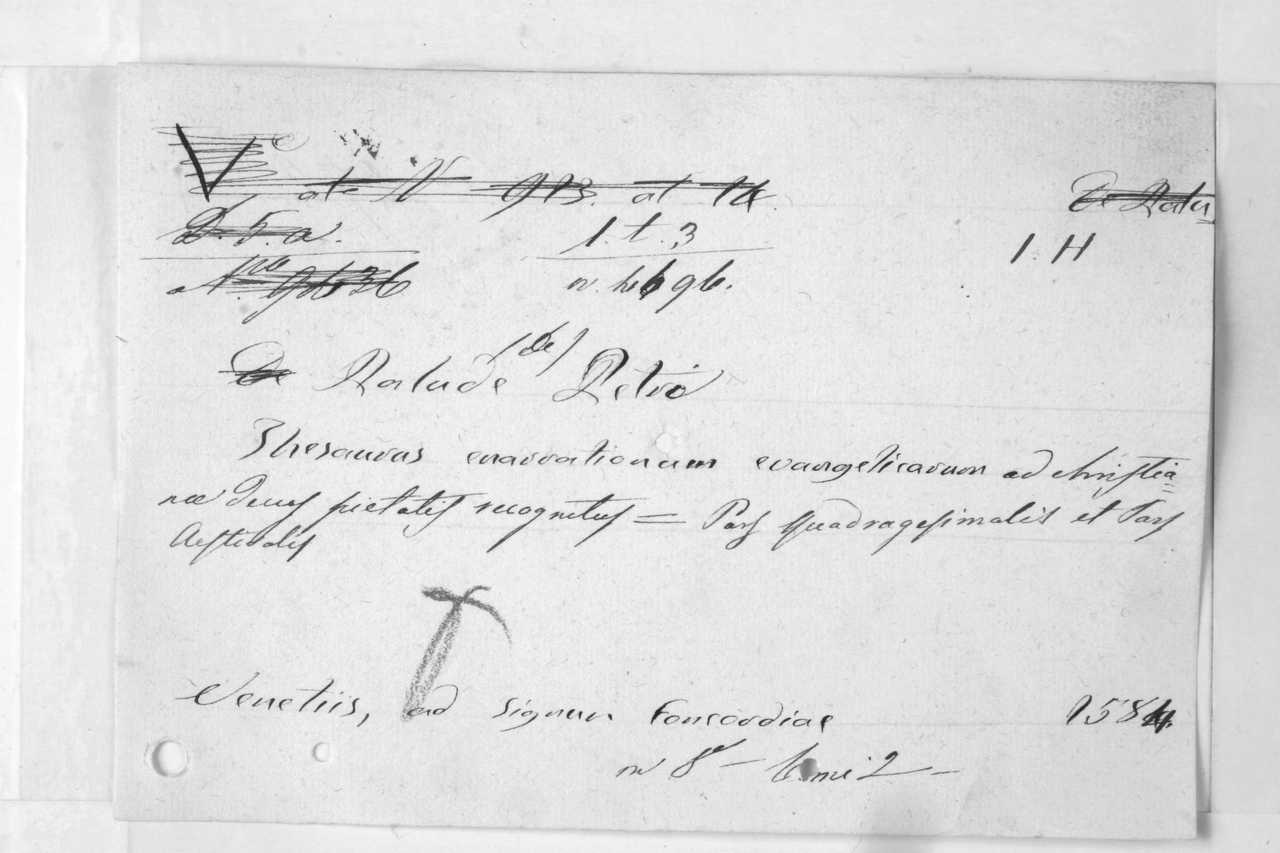 at 14.
De Palu
D. 5. a.
1. t. 3
1. H
n. 696.
De Palude (de) Petrō
Thesaurus enarrationum evangelicarum ad christia=
næ decus pietatis recognitus = Pars Quadragesimalis et Pars
Aestivalis
Venetiis, ad signum Concordiae 1584.
in 8º – t.mi 2 –